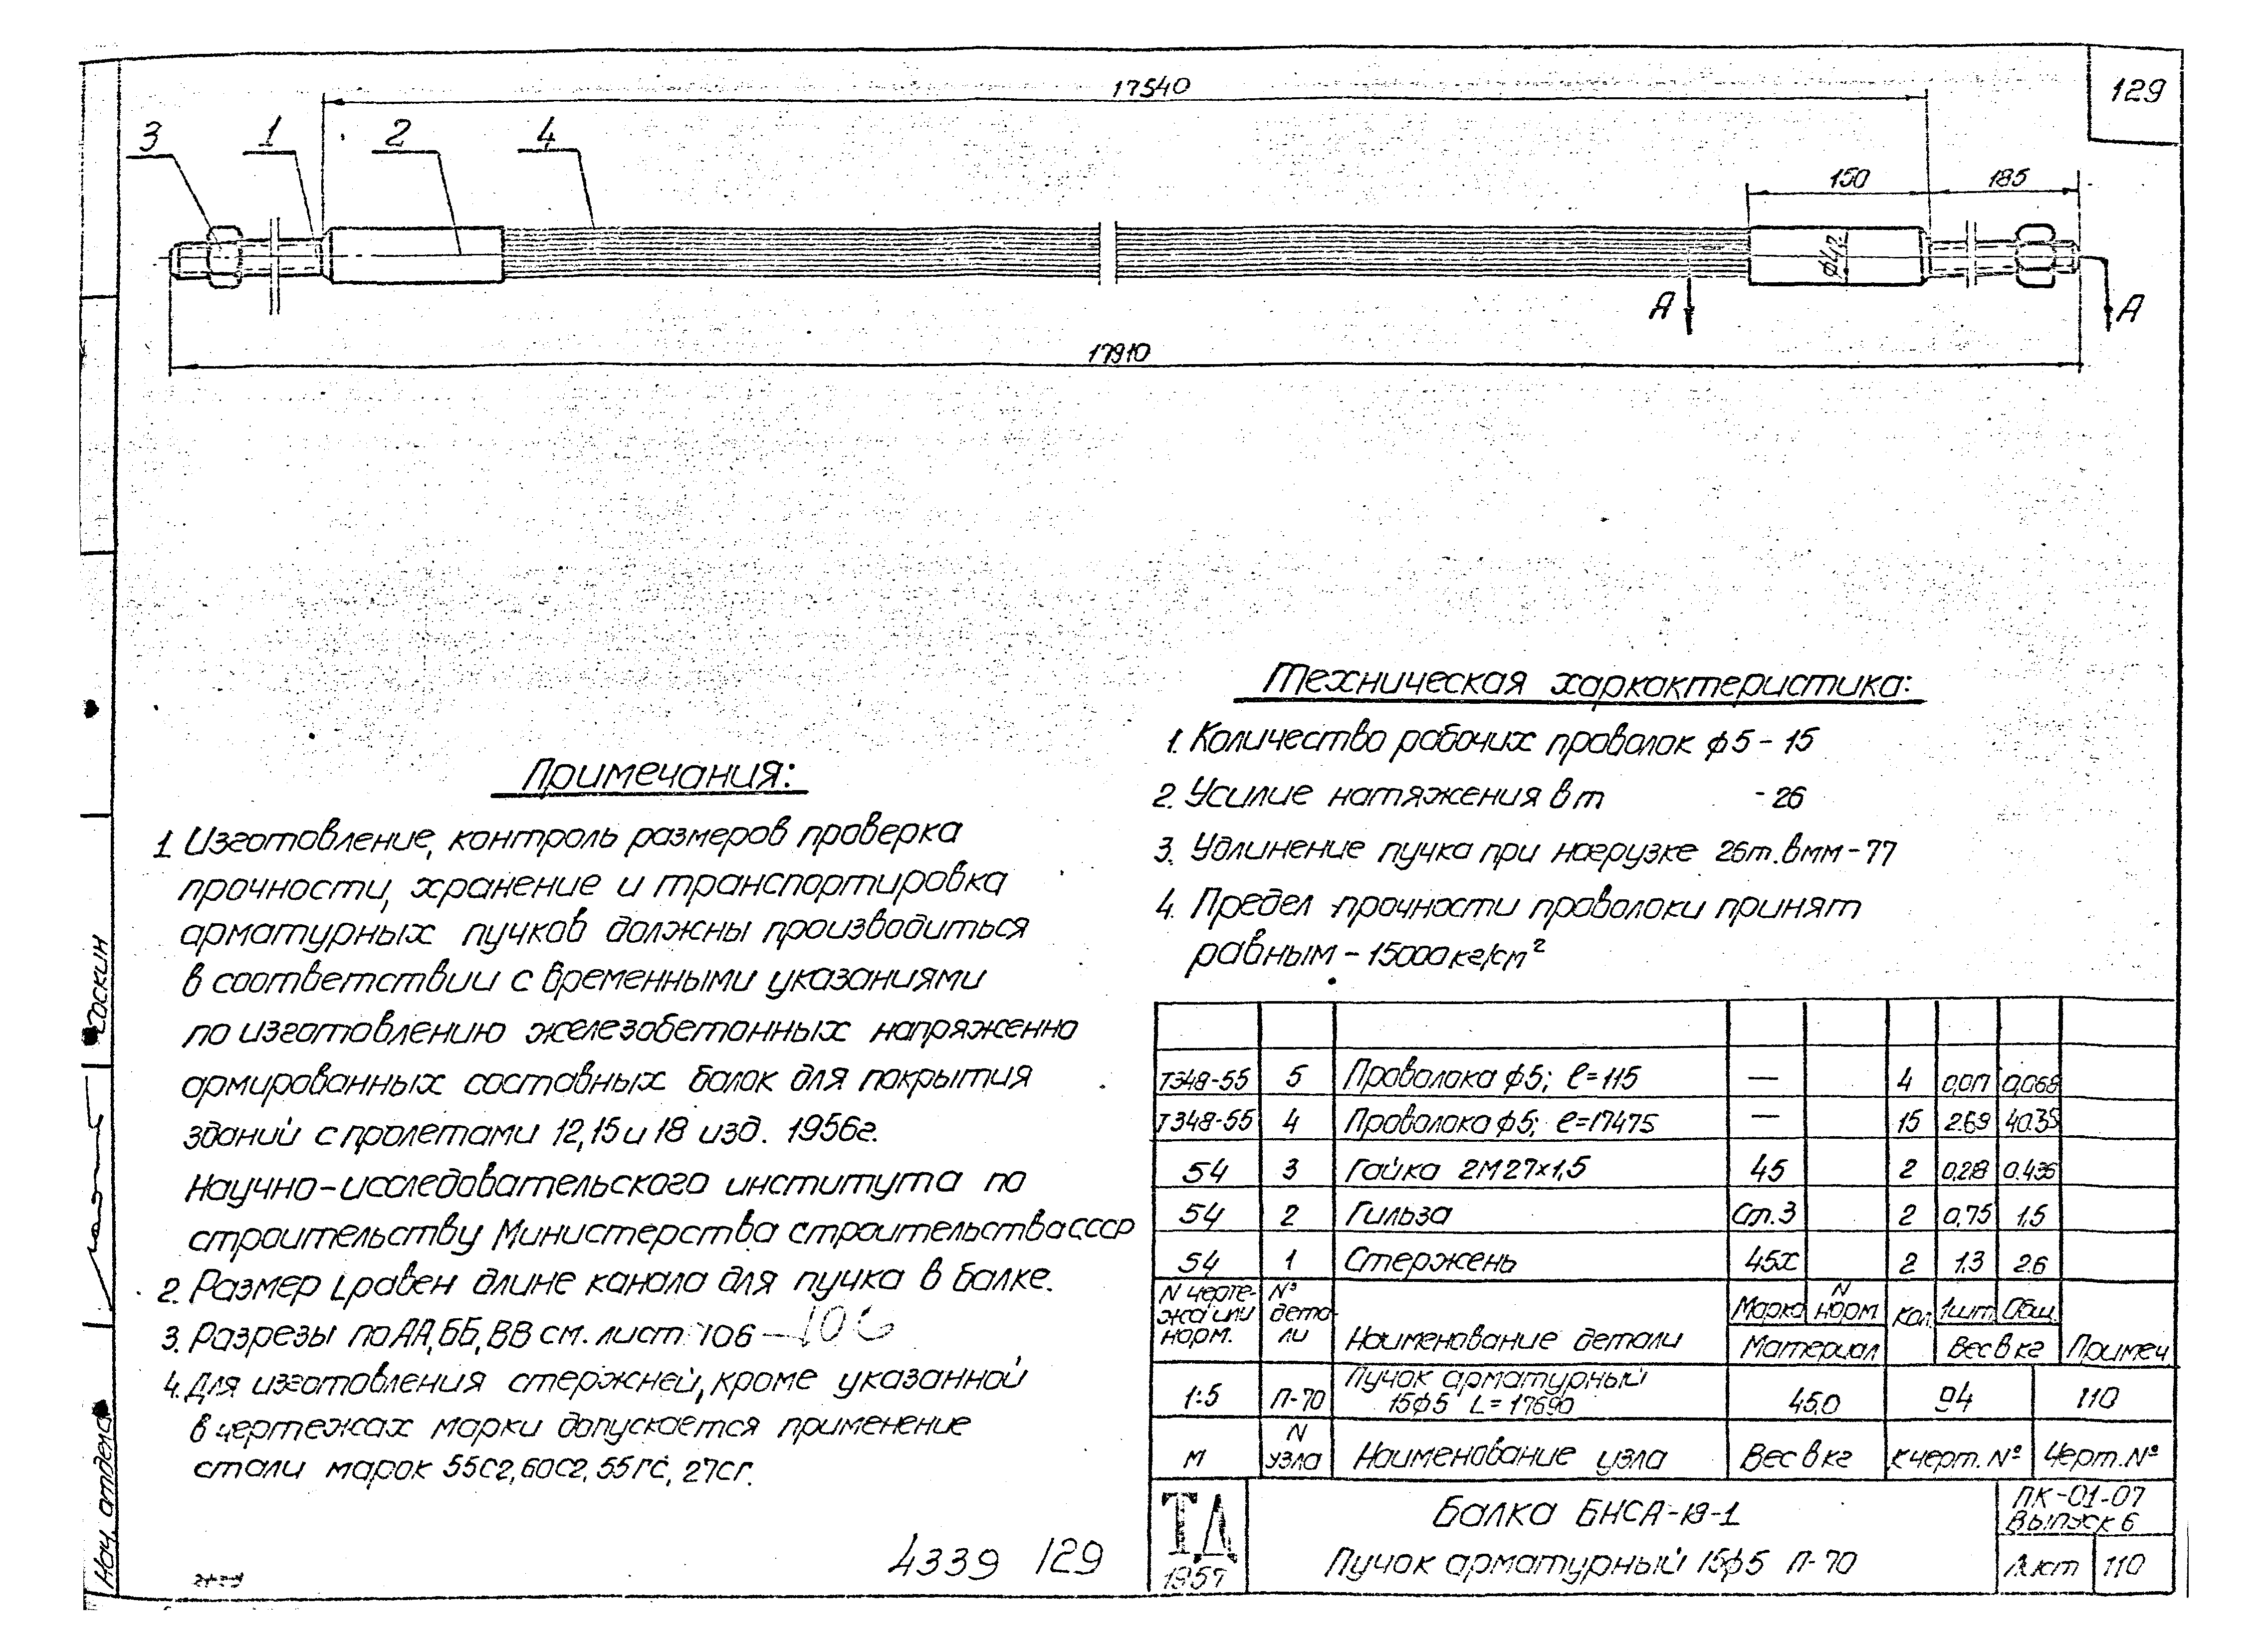 129
17540
3 1 2 4
150 185
ф42
А А
17910
Техническая харкактеристика:
1. Количество рабочих проволок ф5 - 15
2. Усилие натяжения в т - 26
3. Удлинение пучка при нагрузке 26т. в мм - 77
4. Предел прочности проволоки принят
равным - 15000 кг/см²
Примечания:
1. Изготовление, контроль размеров проверка
прочности, хранение и транспортировка
арматурных пучков должны производиться
в соответствии с временными указаниями
по изготовлению железобетонных напряженно
армированных составных балок для покрытия
зданий с пролетами 12, 15 и 18 изд. 1956г.
Научно-исследовательского института по
строительству Министерства строительства СССР
2. Размер L равен длине канала для пучка в балке.
3. Разрезы по АА, ББ, ВВ см. лист 106 — 106
4. Для изготовления стержней, кроме указанной
в чертежах марки допускается применение
стали марок 55С2, 60С2, 55ГС, 27СГ.
Т348-55 5 Проволока ф5; l=115 — 4 0,017 0,068
Т348-55 4 Проволока ф5; l=17475 — 15 2.69 40.35
54 3 Гайка 2М27×1,5 45 2 0,218 0.436
54 2 Гильза Ст.3 2 0,75 1,5
54 1 Стержень 45Х 2 1.3 2.6
N чертежа или норм. №детали Наименование детали Марка N норм Кол. 1шт. Общ.
Материал Вес в кг Примеч
1:5 П-70 Пучок арматурный
15ф5 L=17690 45,0 94 110
М N узла Наименование узла Вес в кг К черт. № Черт. №
ТД
1957
Балка БНСА-18-1
Пучок арматурный 15ф5 П-70
ПК-01-07
Выпуск 6
Лист 110
4339 129
Нач. отдела